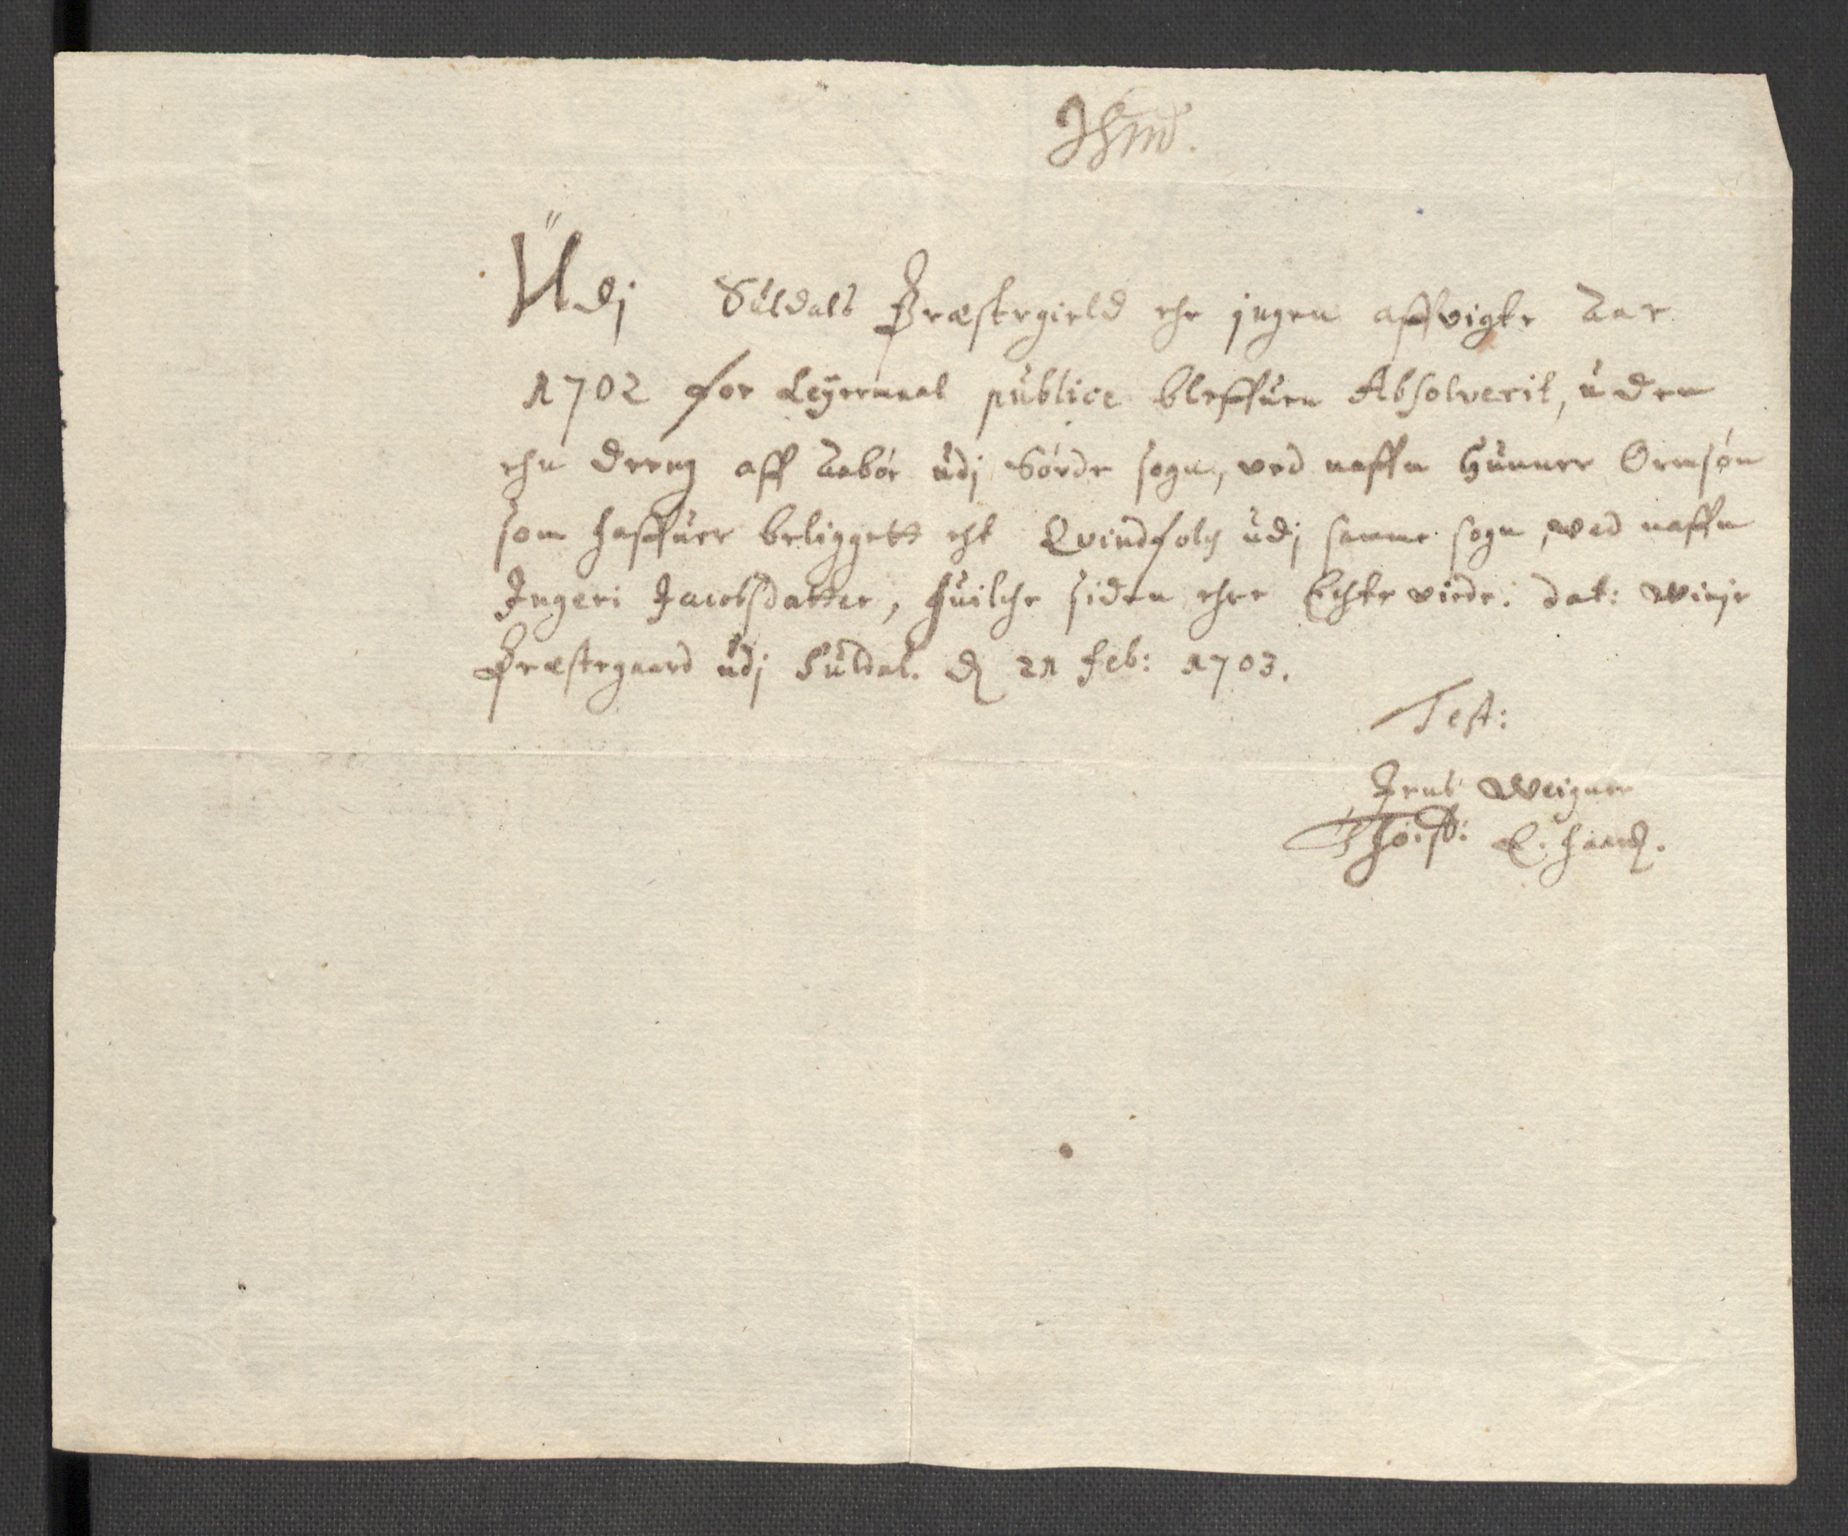 Udj Suldals Præstegield ehr jngen affvigte Aar
1702 for Leyermaal publice bleffuen Absolverit, uden
ehn dreng aff Aabøe udj Sørde sogn, ved naffn Gunner Ormsøn
som haffuer beliggett eht Qvindfolch udj samme sogn, ved naffn
Ingeri Jacobsdatter, huilche siden ehre Echte viede. dat: Winje
Præstegaard udj Suldal. d 21 feb: 1703.
Test:
Jens Weigner
E. haand.